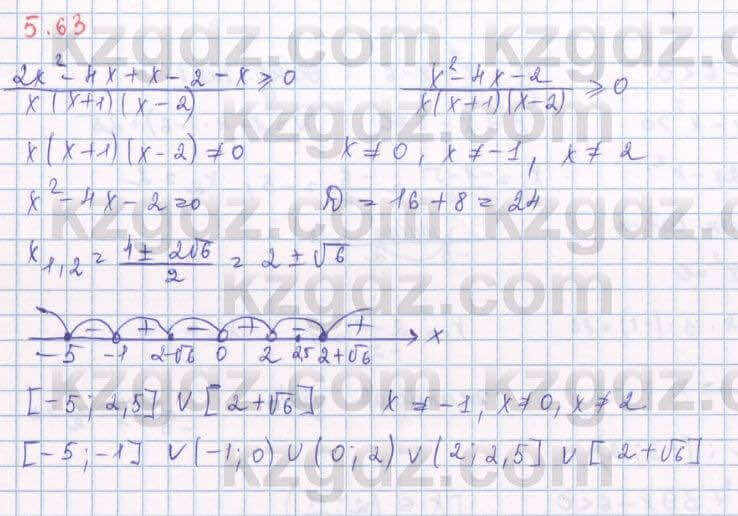 5.63
kzgdz.com
(2x² - 4x + x - 2 - x)/(x(x+1)(x-2)) ≥ 0    (x² - 4x - 2)/(x(x+1)(x-2)) ≥ 0
x(x+1)(x-2) ≠ 0    x ≠ 0, x ≠ -1, x ≠ 2
x² - 4x - 2 = 0    D = 16 + 8 = 24
x₁,₂ = (4 ± 2√6)/2 = 2 ± √6
- + - + - +
-5 -1 2-√6 0 2 2,5 2+√6 x
[-5; 2,5] ∪ [2+√6]    x ≠ -1, x ≠ 0, x ≠ 2
[-5; -1] ∪ (-1; 0) ∪ (0; 2) ∪ (2; 2,5] ∪ [2+√6]